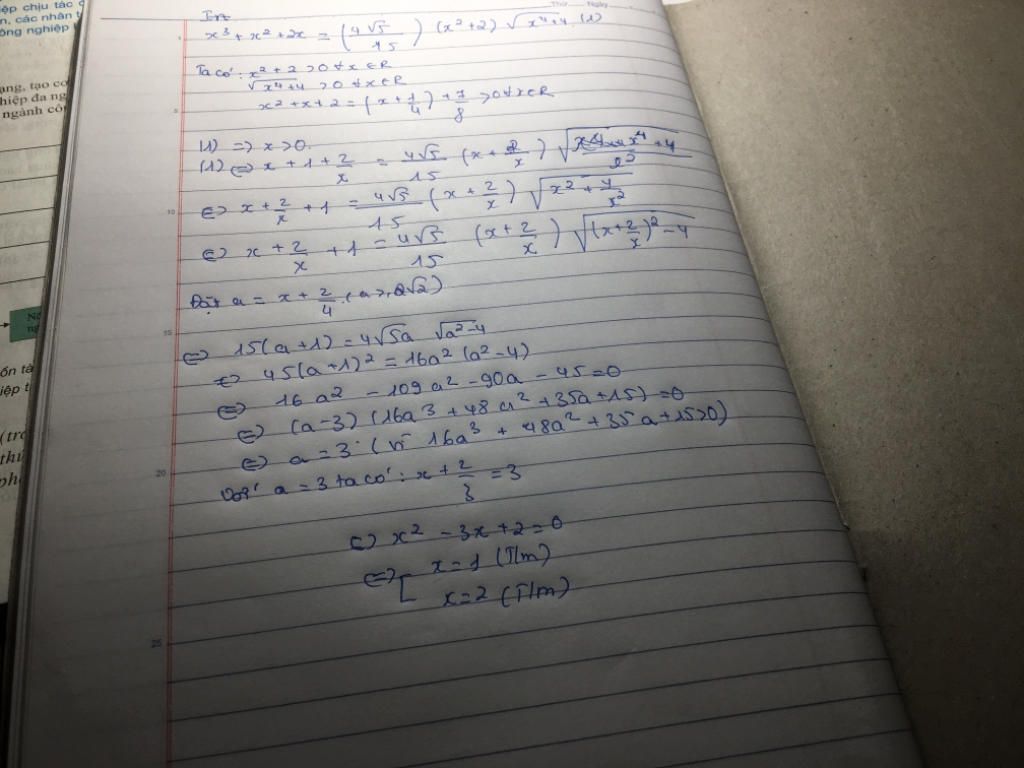 ệp chịu tác đ
n, các nhân t
ông nghiệp t
ang, tạo cơ
hiệp đa ng
ngành côn
ốn tà
iệp t
(trơ
thu
phé
Thứ Ngày
x³ + x² + 2x = (4√5/15) (x² + 2) √x⁴+4 (1)
Ta có: x² + 2 > 0 ∀x ∈ R
√x⁴+4 > 0 ∀x ∈ R
x² + x + 2 = (x + 1/4) + 7/8 > 0 ∀x ∈ R
5
(1) => x > 0.
(1) <=> x + 1 + 2/x = 4√5/15 (x + 2/x) √(x⁴ + 4)/x²
10
<=> x + 2/x + 1 = 4√5/15 (x + 2/x) √x² + 4/x²
<=> x + 2/x + 1 = 4√5/15 (x + 2/x) √(x + 2/x)² - 4
Đặt a = x + 2/4 (a ≥ 2√2)
15
<=> 15(a+1) = 4√5a √a²-4
<=> 45(a+1)² = 16a² (a² - 4)
<=> 16a² - 109a² - 90a - 45 = 0
<=> (a-3) (16a³ + 48a² + 35a + 15) = 0
<=> a = 3 (vì 16a³ + 48a² + 35a + 15 > 0)
20
Với a = 3 ta có: x + 2/3 = 3
<=> x² - 3x + 2 = 0
<=> [ x = 1 (T/m)
x = 2 (T/m)
25